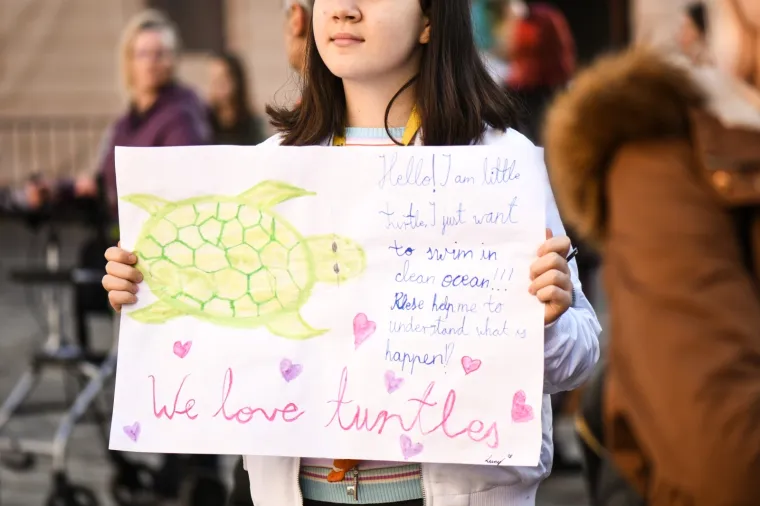 Hello! I am little
turtle. I just want
to swim in
clean ocean!!!
Please help me to
understand what is
happen!!
We love turtles
Lucy